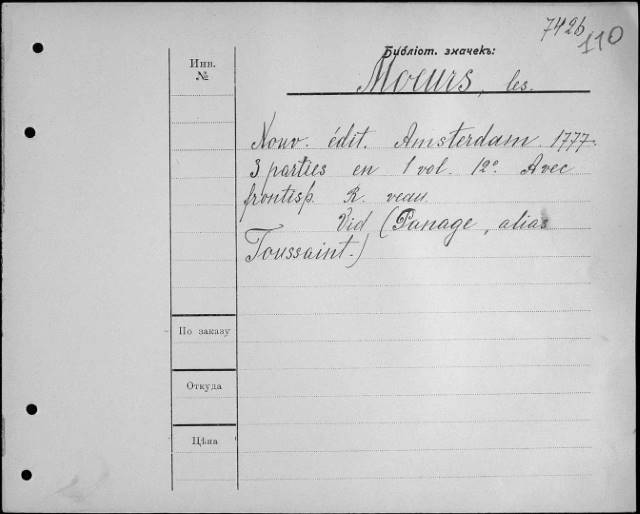 7426
110
Библіот. значекъ:
Инв.
№
Moeurs, les.
Nouv. édit. Amsterdam. 1777.
3 parties en 1 vol. 12°. Avec
frontisp. R. veau.
Vid (Panage, alias
Toussaint.)
По заказу
Откуда
Цѣна